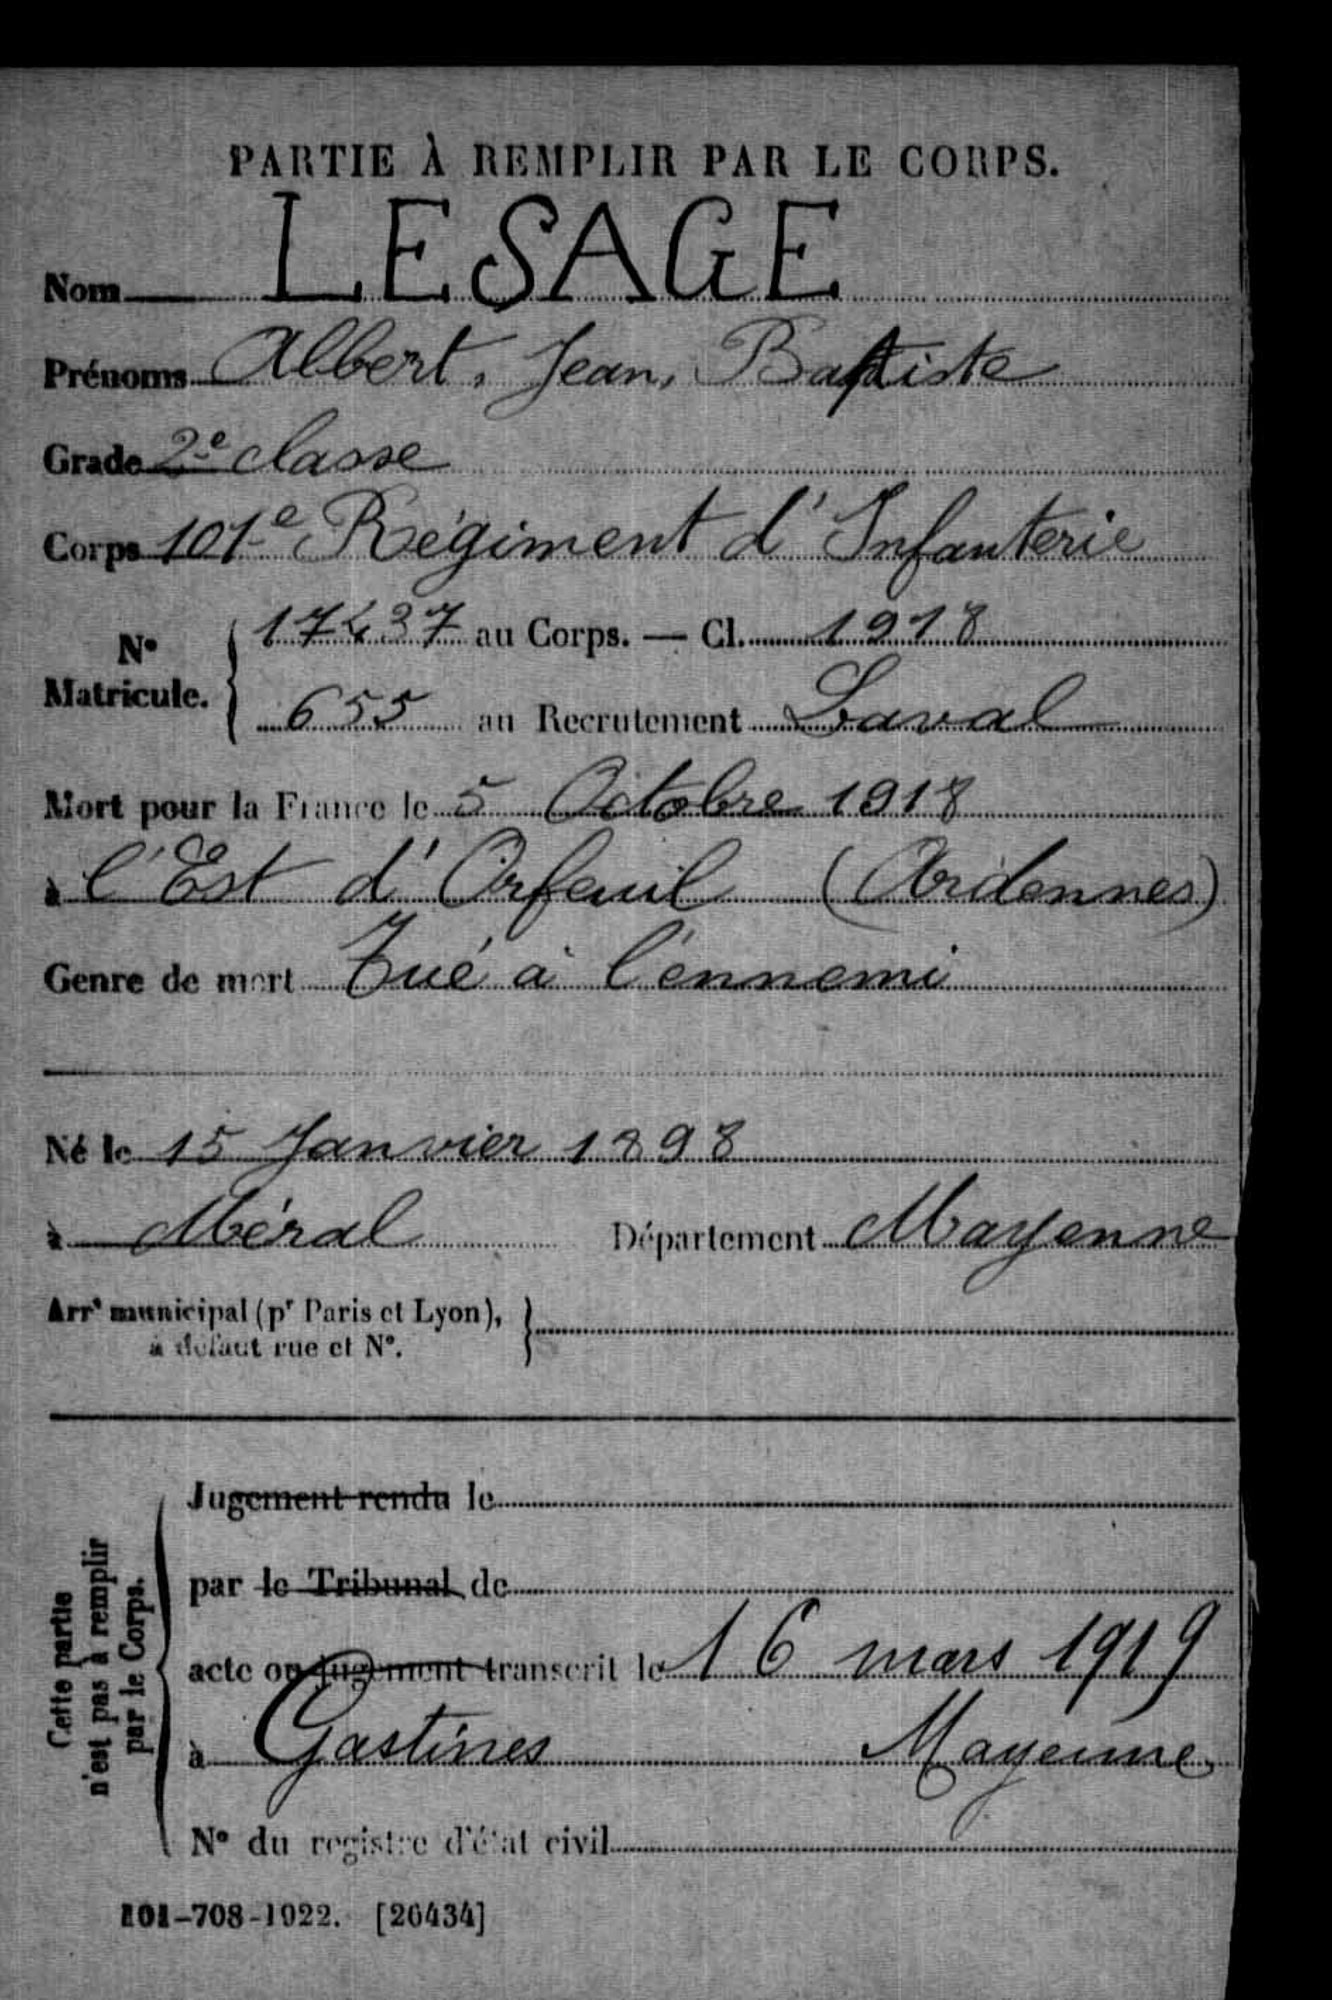 PARTIE À REMPLIR PAR LE CORPS.
Nom LESAGE
Prénoms Albert, Jean, Baptiste
Grade 2e classe
Corps 101e Régiment d'Infanterie
No Matricule. { 17437 au Corps. — Cl. 1918
655 au Recrutement Laval
Mort pour la France le 5 Octobre 1918
à l'Est d'Orfeuil (Ardennes)
Genre de mort Tué à l'ennemi
Né le 15 Janvier 1898
à Méral Département Mayenne
Arrt municipal (pr Paris et Lyon),
à défaut rue et No. }
Cette partie
n'est pas à remplir
par le Corps.
Jugement rendu le
par le Tribunal de
acte ou jugement transcrit le 16 mars 1919
à Gastines Mayenne
No du registre d'état civil
101-708-1922. [26434]